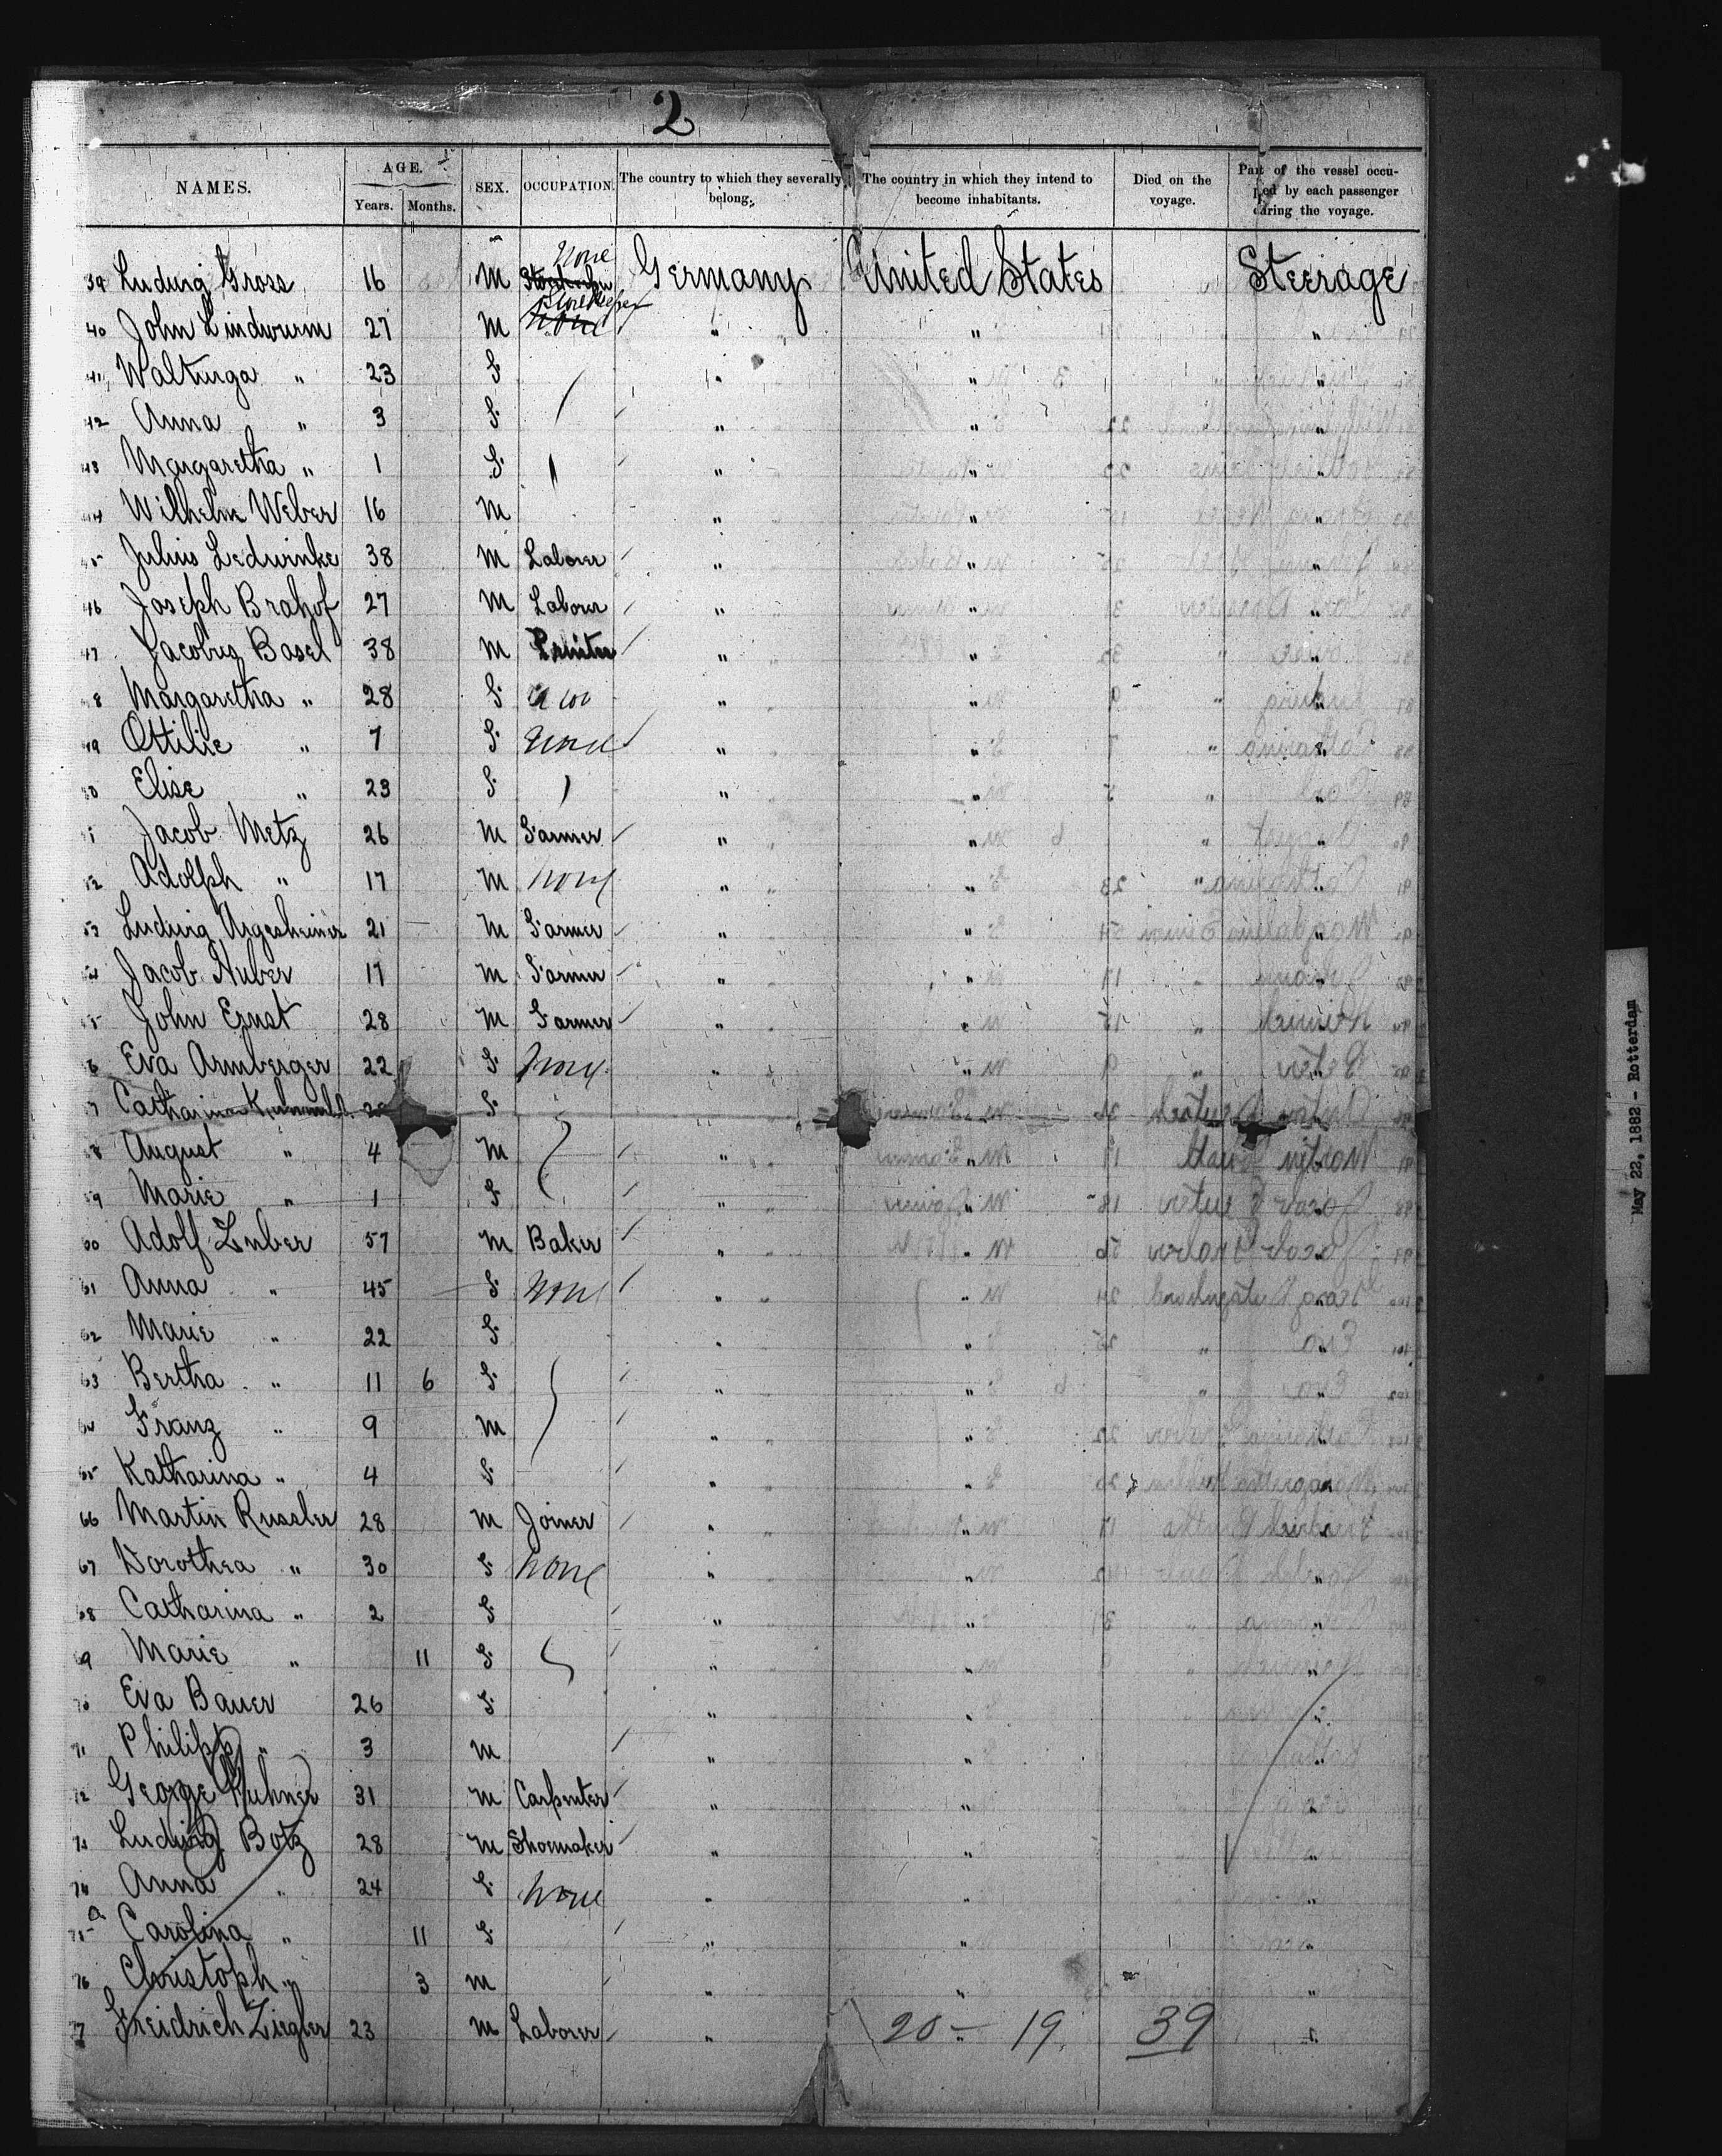 2
NAMES. AGE. Years. Months. SEX. OCCUPATION. The country to which they severally belong. The country in which they intend to become inhabitants. Died on the voyage. Part of the vessel occupied by each passenger during the voyage.
39 Ludwig Gross 16 M None Germany United States Steerage
40 John Lindwurm 27 M Storekeeper None " " "
41 Walburga " 23 F " " "
42 Anna " 3 F " " "
43 Margaretha " 1 F " " "
44 Wilhelm Weber 16 M " " "
45 Julius Ledwinke 38 M Laborer " " "
46 Joseph Brahof 27 M Laborer " " "
47 Jacobus Basel 38 M Printer " " "
48 Margaretha " 28 F " " "
49 Ottilie " 7 F None " " "
50 Elise " 23 F " " "
51 Jacob Metz 26 M Farmer " " "
52 Adolph " 17 M None " " "
53 Ludwig 21 M Farmer " " "
54 Jacob Huber 17 M Farmer " " "
55 John Ernst 28 M Farmer " " "
56 Eva Armberger 22 F None " " "
57 Catharina F
58 August " 4 M " " "
59 Marie " 1 F " " "
60 Adolf Zuber 57 M Baker " " "
61 Anna " 45 F None " " "
62 Marie " 22 F " " "
63 Bertha " 11 6 F " " "
64 Franz " 9 M " " "
65 Katharina " 4 F " " "
66 Martin Russler 28 M Joiner " " "
67 Dorothea " 30 F None " " "
68 Catharina " 2 F " " "
69 Marie " 11 F " " "
70 Eva Bauer 26 F " " "
71 Philipp " 3 M " " "
72 George Kuhner 31 M Carpenter " " "
73 Ludwig Botz 28 M Shoemaker " " "
74 Anna " 24 F None " " "
75 Carolina " 11 F " " "
76 Christoph " 3 M " " "
77 Freidrich Ziegler 23 M Laborer " " "
20 - 19. 39
May 22, 1882 - Rotterdam